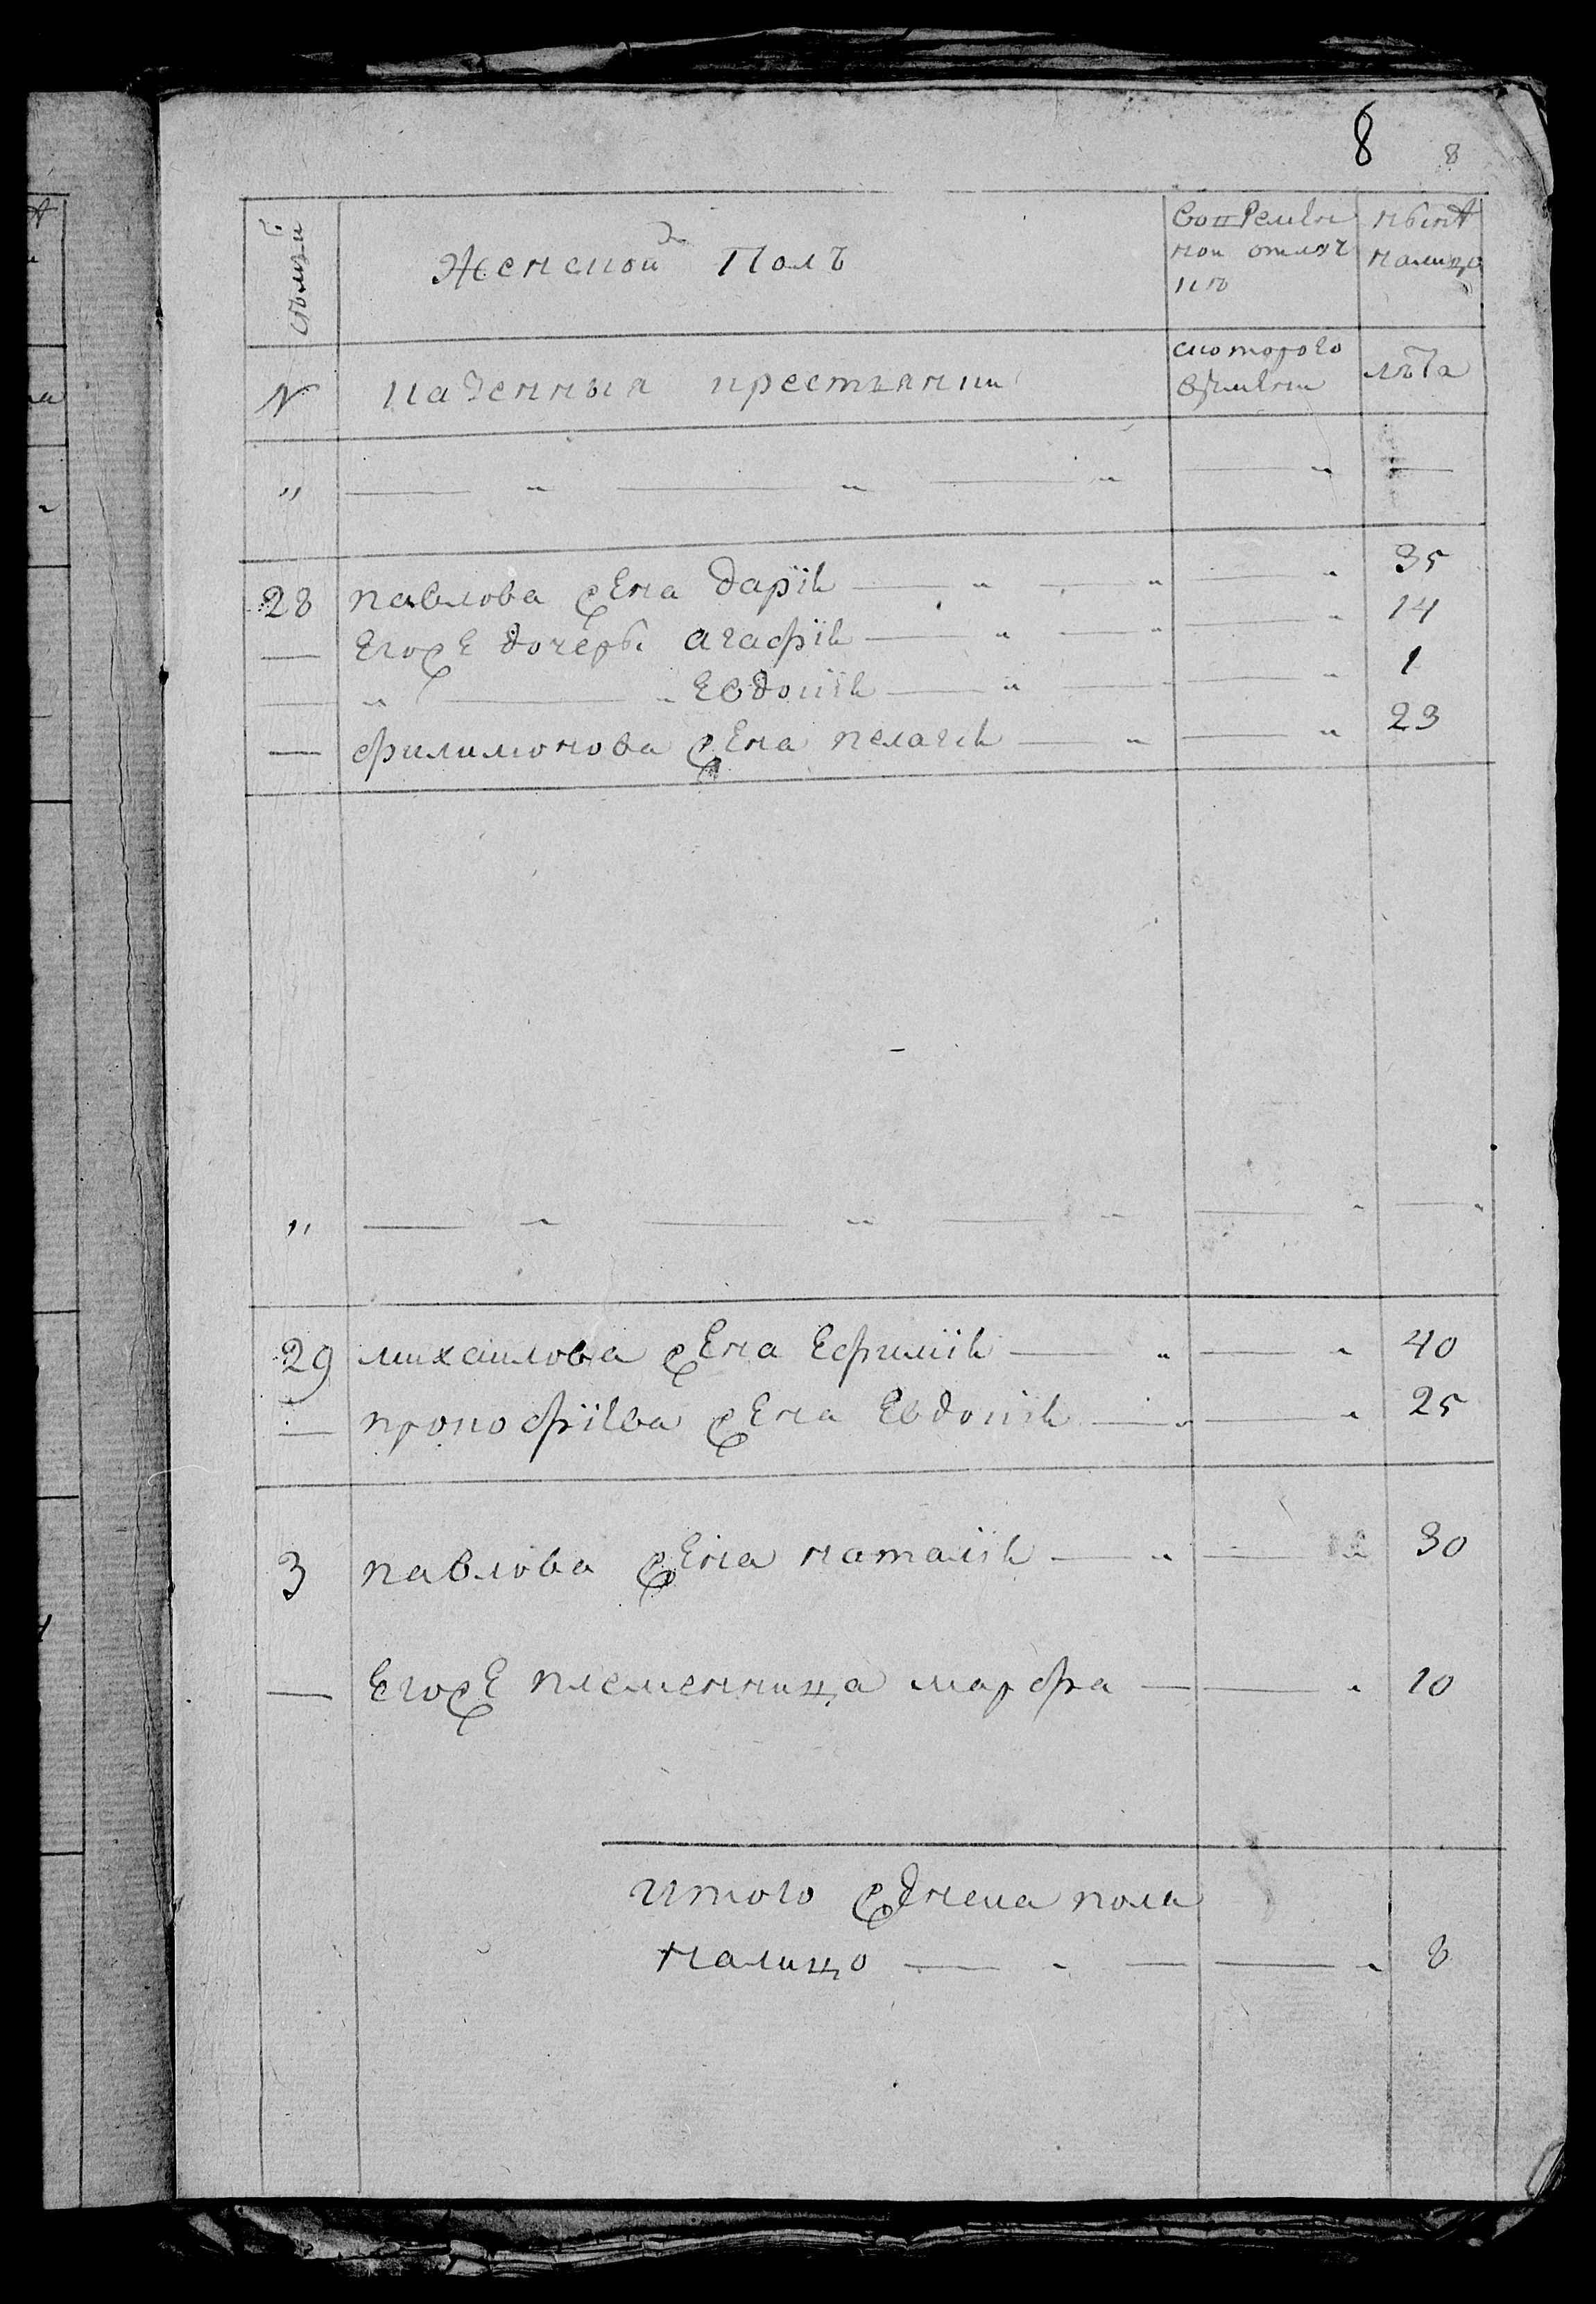 8 8
семьи
Женской Полъ
Вовремен
ной отлуч
ке
нынѣ
налицо
№
казенныя крестьянки
скоторого
времяни
лѣта
28 павлова жена дарія — — — 35
— Егожъ дочерь агафія — — — 14
— „ — Евдокія — — — 1
— филимонова жена пелагія — — 23
„ — „ — „ — „ — „ — „
29 михаилова жена Ефимія — — 40
— прокофіева жена Евдокія — — 25
3 павлова жена наталія — — 30
— Егожъ племенница марфа — — 10
итого женска пола
налицо — — 8